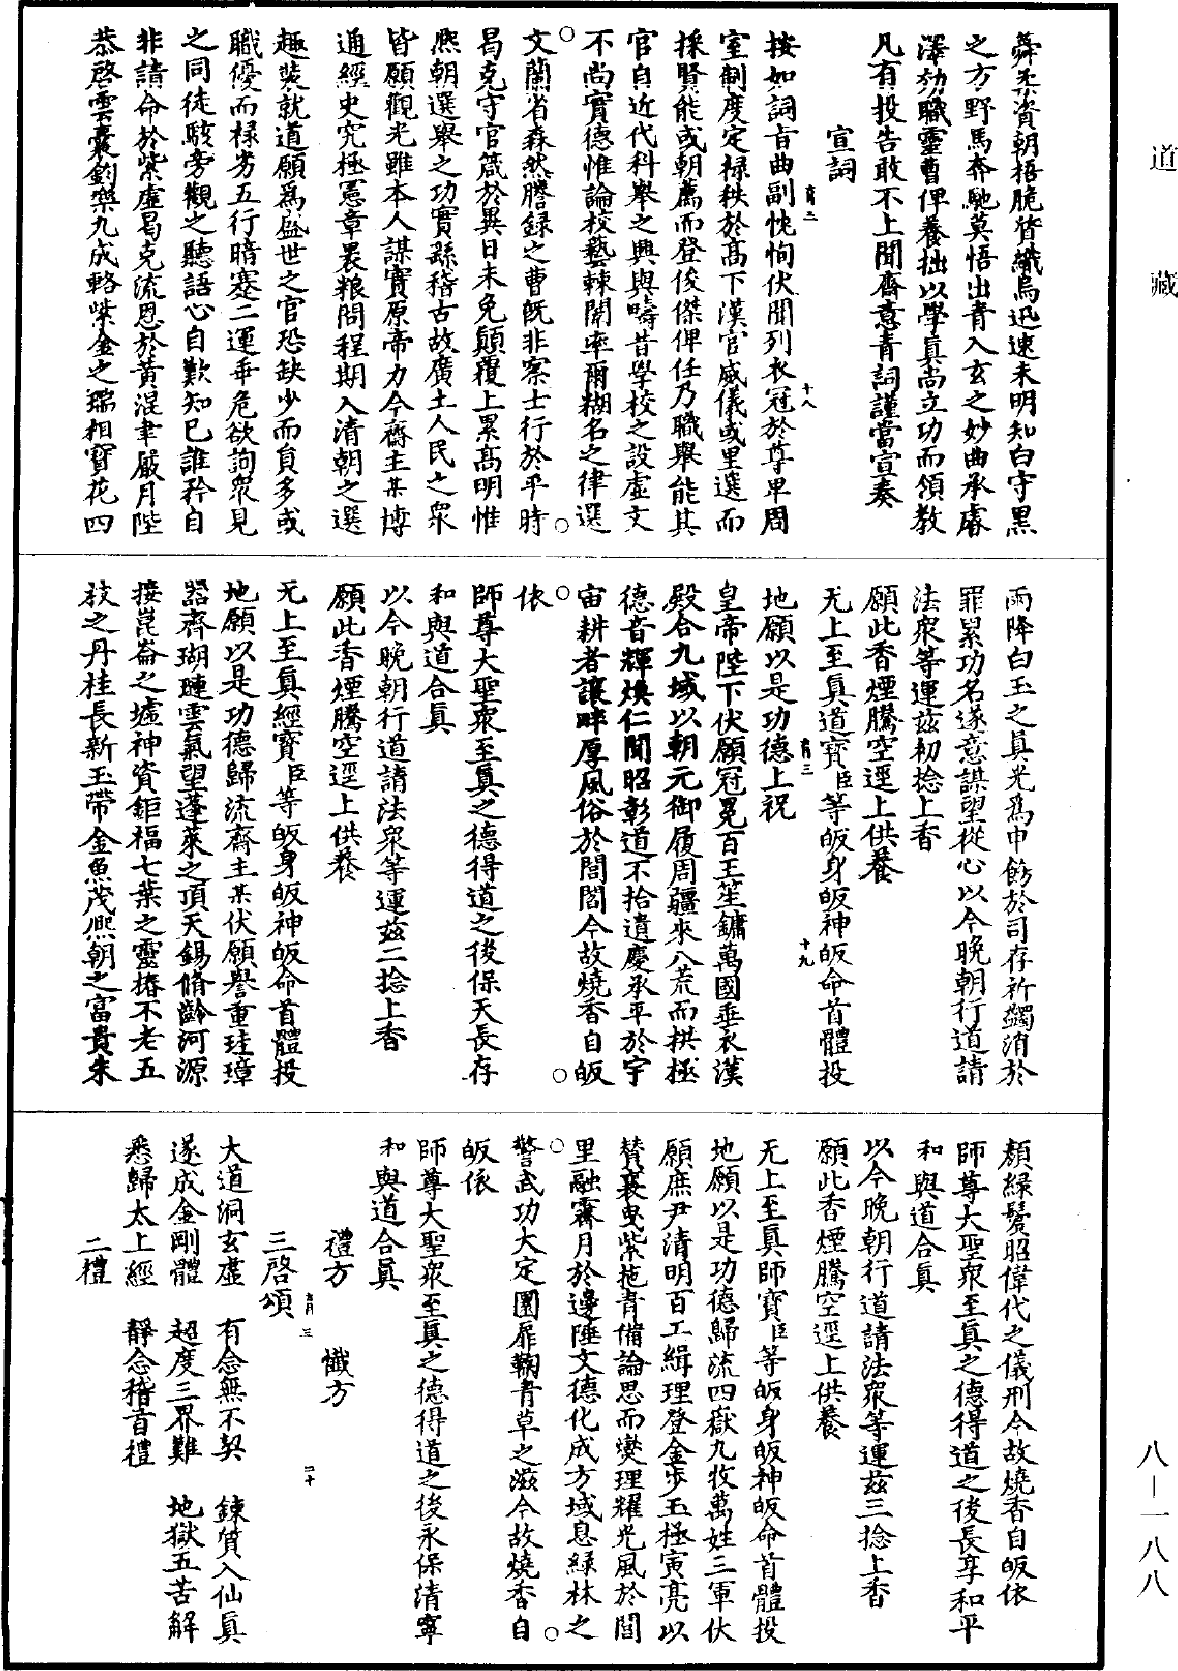 道藏
八—一八八
蕣柔資朝梧脆質纖烏迅速未明知白守黑
之方野馬奔馳莫悟出青入玄之妙曲承睿
澤劾職靈曹俾養拙以學真尚立功而領教
凡有投告敢不上聞齋意青詞謹當宣奏
宣詞
按如詞旨曲副忱恂伏聞列衣冠於尊卑周
室制度定祿秩於高下漢官威儀或里選而
採賢能或朝薦而登俊傑俾任乃職舉能其
官自近代科舉之興與疇昔學校之設虛文
不尚實德惟論校藝棘闈率爾糊名之律選
文蘭省森然謄錄之曹旣非案士行於平時
曷克守官箴於異日未免顛覆上累高明惟
熈朝選舉之功實繇稽古故廣土人民之衆
皆願觀光雖本人謀實原帝力今齋主某博
通經史究極憲章裹粮問程期入清朝之選
趣裝就道願爲盛世之官恐缺少而員多或
職優而祿劣五行暗蹇二運垂危欲詢衆見
之同徒駭旁觀之聽語心自歎知已誰矜自
非請命於紫虛曷克流恩於黃混聿嚴月陛
恭啓雲囊鈞樂九成輅紫金之瑞相寶花四
雨降白玉之真光爲申飭於司存祈蠲消於
罪累功名遂意謀望從心以今晚朝行道請
法衆等運茲初捻上香
願此香煙騰空逕上供養
无上至真道寶臣等皈身皈神皈命首體投
地願以是功德上祝
皇帝陛下伏願冠冕百王笙鏞萬國垂衣漢
殿合九域以朝元御履周疆來八荒而拱極
德音輝煥仁聞昭彰道不拾遺慶承平於宇
宙耕者讓畔厚風俗於閭閻今故燒香自皈
依
師尊大聖衆至真之德得道之後保天長存
和與道合真
以今晚朝行道請法衆等運茲二捻上香
願此香煙騰空逕上供養
无上至真經寶臣等皈身皈神皈命首體投
地願以是功德歸流齋主某伏願譽重珪璋
器齊瑚璉雲氣望蓬萊之頂天錫脩齡河源
接崑崙之墟神資鉅福七葉之靈椿不老五
枝之丹桂長新玉帶金魚茂熈朝之富貴朱
顏綠鬢昭偉代之儀刑今故燒香自皈依
師尊大聖衆至真之德得道之後長享和平
和與道合真
以今晚朝行道請法衆等運茲三捻上香
願此香煙騰空逕上供養
无上至真師寶臣等皈身皈神皈命首體投
地願以是功德歸流四嶽九牧萬姓三軍伏
願庶尹清明百工緝理登金步玉極寅亮以
贊襄曳紫拖青備論思而爕理耀光風於閭
里融霽月於邊陲文德化成方域息綠林之
警武功大定圜扉鞠青草之滋今故燒香自
皈依
師尊大聖衆至真之德得道之後永保清寧
和與道合真
禮方　懺方
三啓頌
大道洞玄虛　有念無不契　鍊質入仙真
遂成金剛體　超度三界難　地獄五苦解
悉歸太上經　靜念稽首禮
二禮